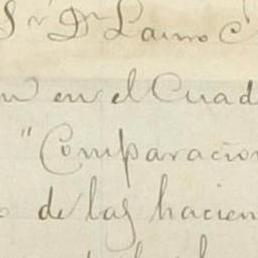 Sr Dr Lauro C
en el Cuad
"Comparacion
de las hacien